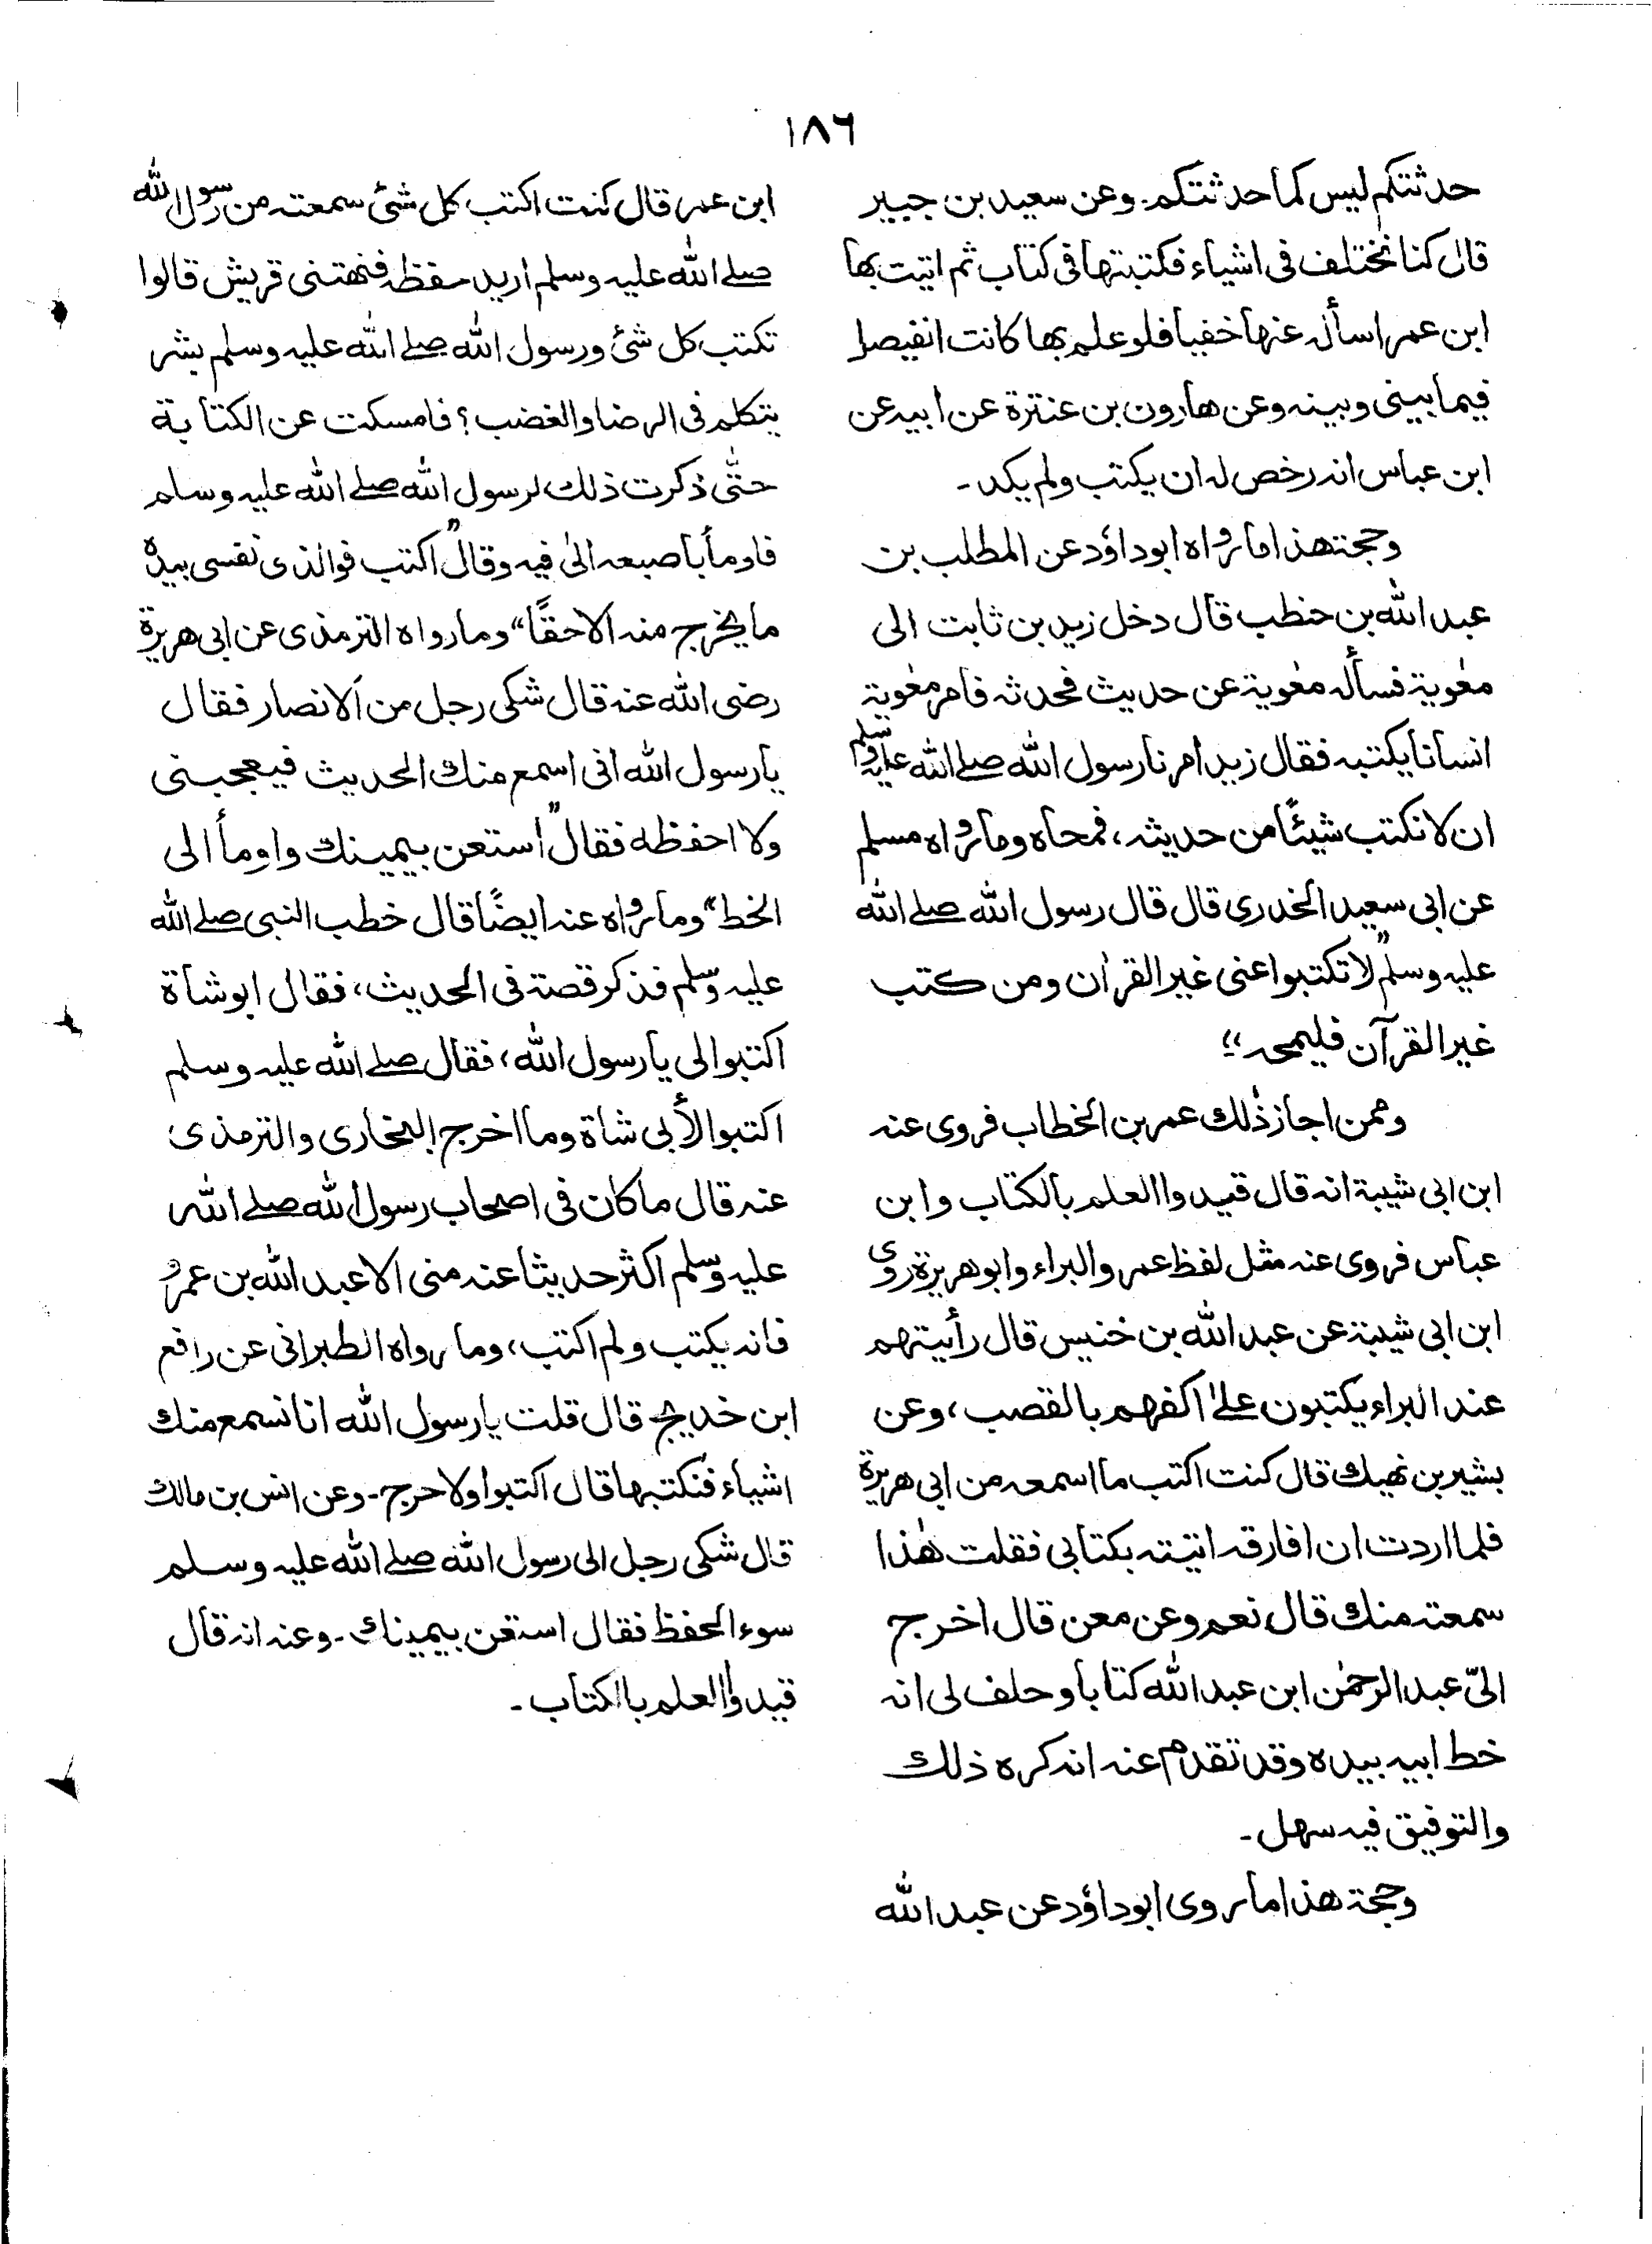 ١٨٦
حدثتكم ليس كما حدثتكم. وعن سعيد بن جبير
قال كنا نختلف فى اشياء فكتبتها فى كتاب ثم اتيت بها
ابن عمر اسأله عنها خفيا فلو علم بها كانت انفيصل
فيما بينى وبينه وعن هارون بن عنترة عن ابيه عن
ابن عباس انه رخص له ان يكتب ولم يكد ـ
وحجة هذا ما رواه ابوداؤد عن المطلب بن
عبد الله بن حنطب قال دخل زيد بن ثابت الى
معٰوية فسأله معٰوية عن حديث فحدثه فامر معٰوية
انسانا يكتبه فقال زيد امرنا رسول الله صلے الله عليه وسلم
ان لا نكتب شيئًا من حديثه، فمحاه وما رواه مسلم
عن ابى سعيد الخدرى قال قال رسول الله صلے الله
عليه وسلم "لا تكتبوا عنى غير القراٰن ومن كتب
غير القرآن فليمحه"
وممن اجاز ذٰلك عمر بن الخطاب فروى عنه
ابن ابى شيبة انه قال قيدوا العلم بالكتاب وابن
عباس فروى عنه مثل لفظ عمر والبراء وابو هريرة روى
ابن ابى شيبة عن عبد الله بن خنيس قال رأيتهم
عند البراء يكتبون علٰے اكفهم بالقصب، وعن
بشير بن نهيك قال كنت اكتب ما اسمعه من ابى هريرة
فلما اردت ان افارقه اتيته بكتابى فقلت هٰذا
سمعته منك قال نعم وعن معن قال اخرج
الىّ عبد الرحمٰن ابن عبد الله كتابا وحلف لى انه
خط ابيه بيده وقد تقدم عنه انه كره ذلك
والتوفيق فيه سهل ـ
وحجة هذا ما روى ابوداؤد عن عبد الله
ابن عمر قال كنت اكتب كل شئ سمعته من رسول الله
صلے الله عليه وسلم اريد حفظه فنهتنى قريش قالوا
تكتب كل شئ ورسول الله صلے الله عليه وسلم بشر
يتكلم فى الرضا والغضب؟ فامسكت عن الكتابة
حتّٰى ذكرت ذلك لرسول الله صلے الله عليه وسلم
فاومأ باصبعه الىٰ فيه وقال "اكتب فوالذى نفسى بيده
ما يخرج منه الا حقًّا" وما رواه الترمذى عن ابى هريرة
رضى الله عنه قال شكى رجل من الانصار فقال
يا رسول الله انى اسمع منك الحديث فيعجبنى
ولا احفظه فقال "استعن بيمينك واومأ الى
الخط" وما رواه عنه ايضًا قال خطب النبى صلے الله
عليه وسلم فذكر قصة فى الحديث، فقال ابو شاة
اكتبوا لى يا رسول الله، فقال صلے الله عليه وسلم
اكتبوا لأبى شاة وما اخرج البخارى والترمذى
عنه قال ما كان فى اصحاب رسول الله صلے الله
عليه وسلم اكثر حديثا عنه منى الا عبد الله بن عمرو
فانه يكتب ولم اكتب، وما رواه الطبرانى عن رافع
ابن خديج قال قلت يا رسول الله انا نسمع منك
اشياء فنكتبها قال اكتبوا ولا حرج ـ وعن انس بن مالك
قال شكى رجل الى رسول الله صلے الله عليه وسلم
سوء الحفظ فقال استعن بيمينك ـ وعنه انه قال
قيدوا العلم بالكتاب ـ